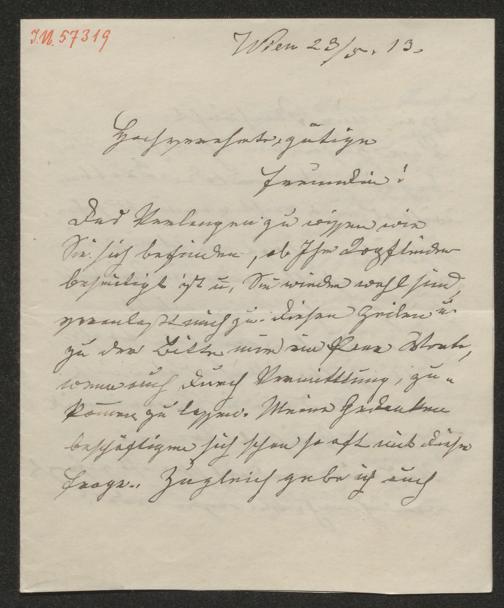 I.N. 57319
Wien 23/5. 13.
Hochverehrte, gütige
Freundin!
Das Verlangen zu wissen wie
Sie sich befinden, ob Ihr Kopfleiden
beseitigt ist u. Sie wieder wohl sind,
veranlaßt mich zu diesen Zeilen u.
zu der Bitte mir ein Paar Worte,
wenn auch durch Vermittlung, zu-
kommen zu lassen. Meine Gedanken
beschäftigen sich schon so oft mit dieser
Frage. Zugleich gebe ich auch